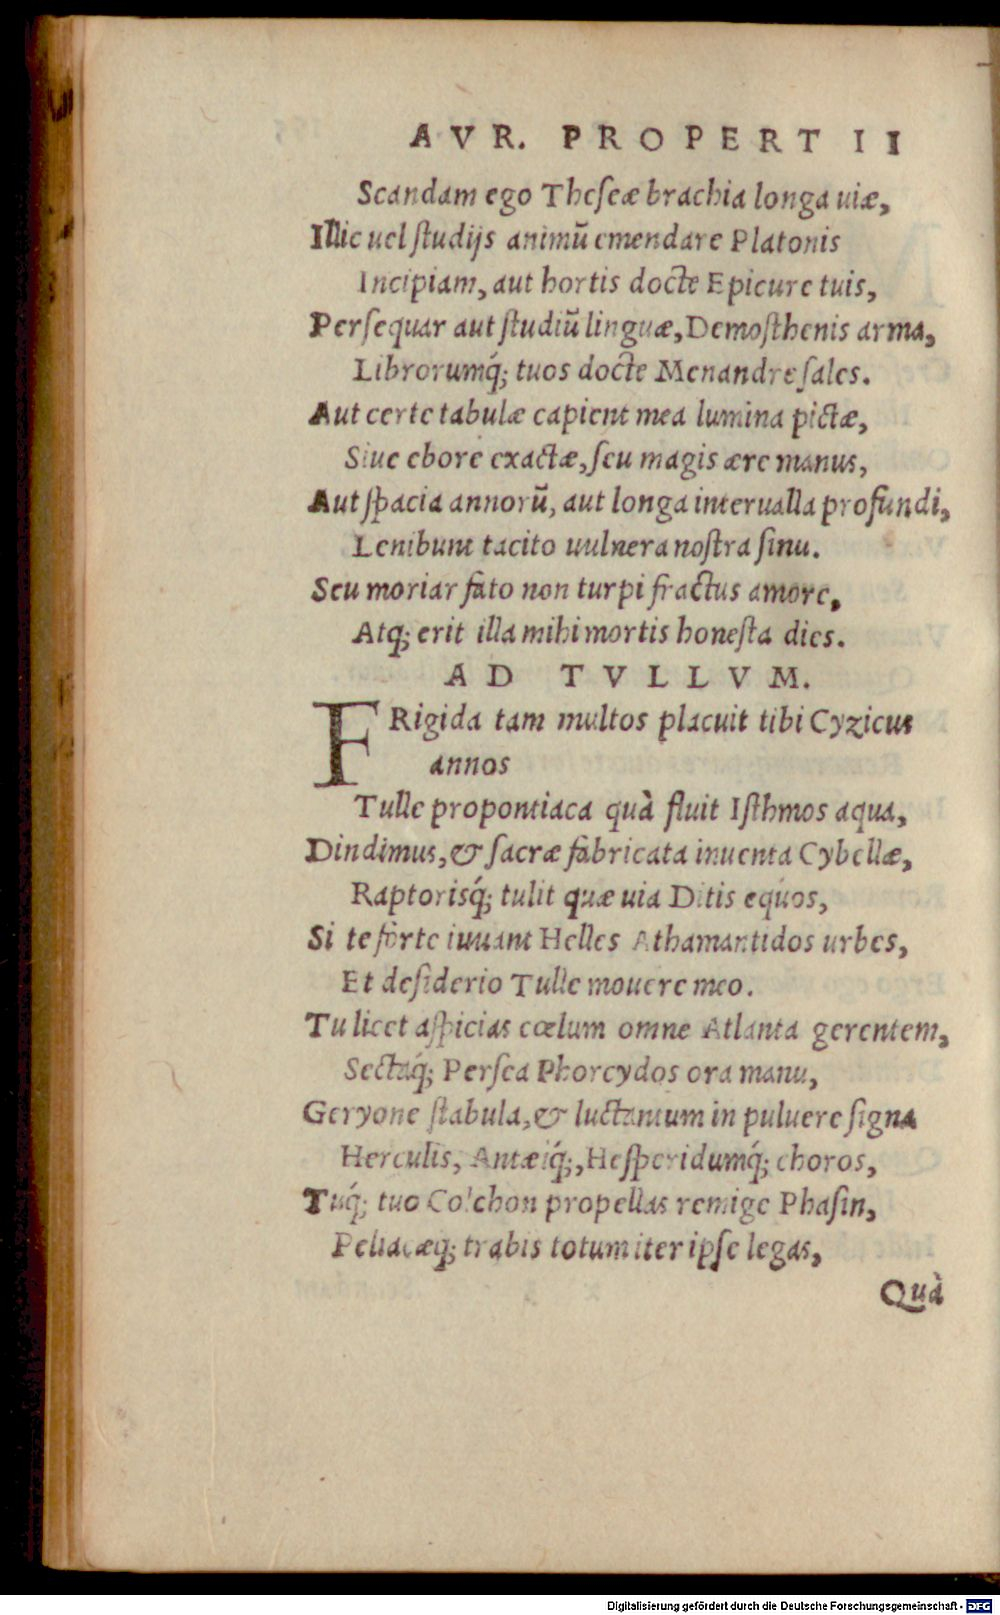 AVR. PROPERT II
Scandam ego Theſeæ brachia longa uiæ,
Illic uel ſtudijs animū emendare Platonis
Incipiam, aut hortis docte Epicure tuis,
Perſequar aut ſtudiū linguæ, Demoſthenis arma,
Librorumq́; tuos docte Menandre ſales.
Aut certe tabulæ capient mea lumina pictæ,
Siue ebore exactæ, ſeu magis ære manus,
Aut ſpacia annorū, aut longa interualla profundi,
Lenibunt tacito uulnera noſtra ſinu.
Seu moriar fato non turpi fractus amore,
Atq; erit illa mihi mortis honeſta dies.
AD TVLLVM.
FRigida tam multos placuit tibi Cyzicus
annos
Tulle propontiaca quà fluit Iſthmos aqua,
Dindimus, & ſacræ fabricata inuenta Cybellæ,
Raptorisq́; tulit quæ uia Ditis equos,
Si te forte iuuant Helles Athamantidos urbes,
Et deſiderio Tulle mouere meo.
Tu licet aſpicias cœlum omne Atlanta gerentem,
Sectaq́; Perſea Phorcydos ora manu,
Geryone ſtabula, & luctantum in puluere ſigna
Herculis, Antæiq́;, Heſperidumq́; choros,
Tuq́; tuo Colchon propellas remige Phaſin,
Peliacæq; trabis totum iter ipſe legas,
Quà
Digitalisierung gefördert durch die Deutsche Forschungsgemeinschaft - DFG